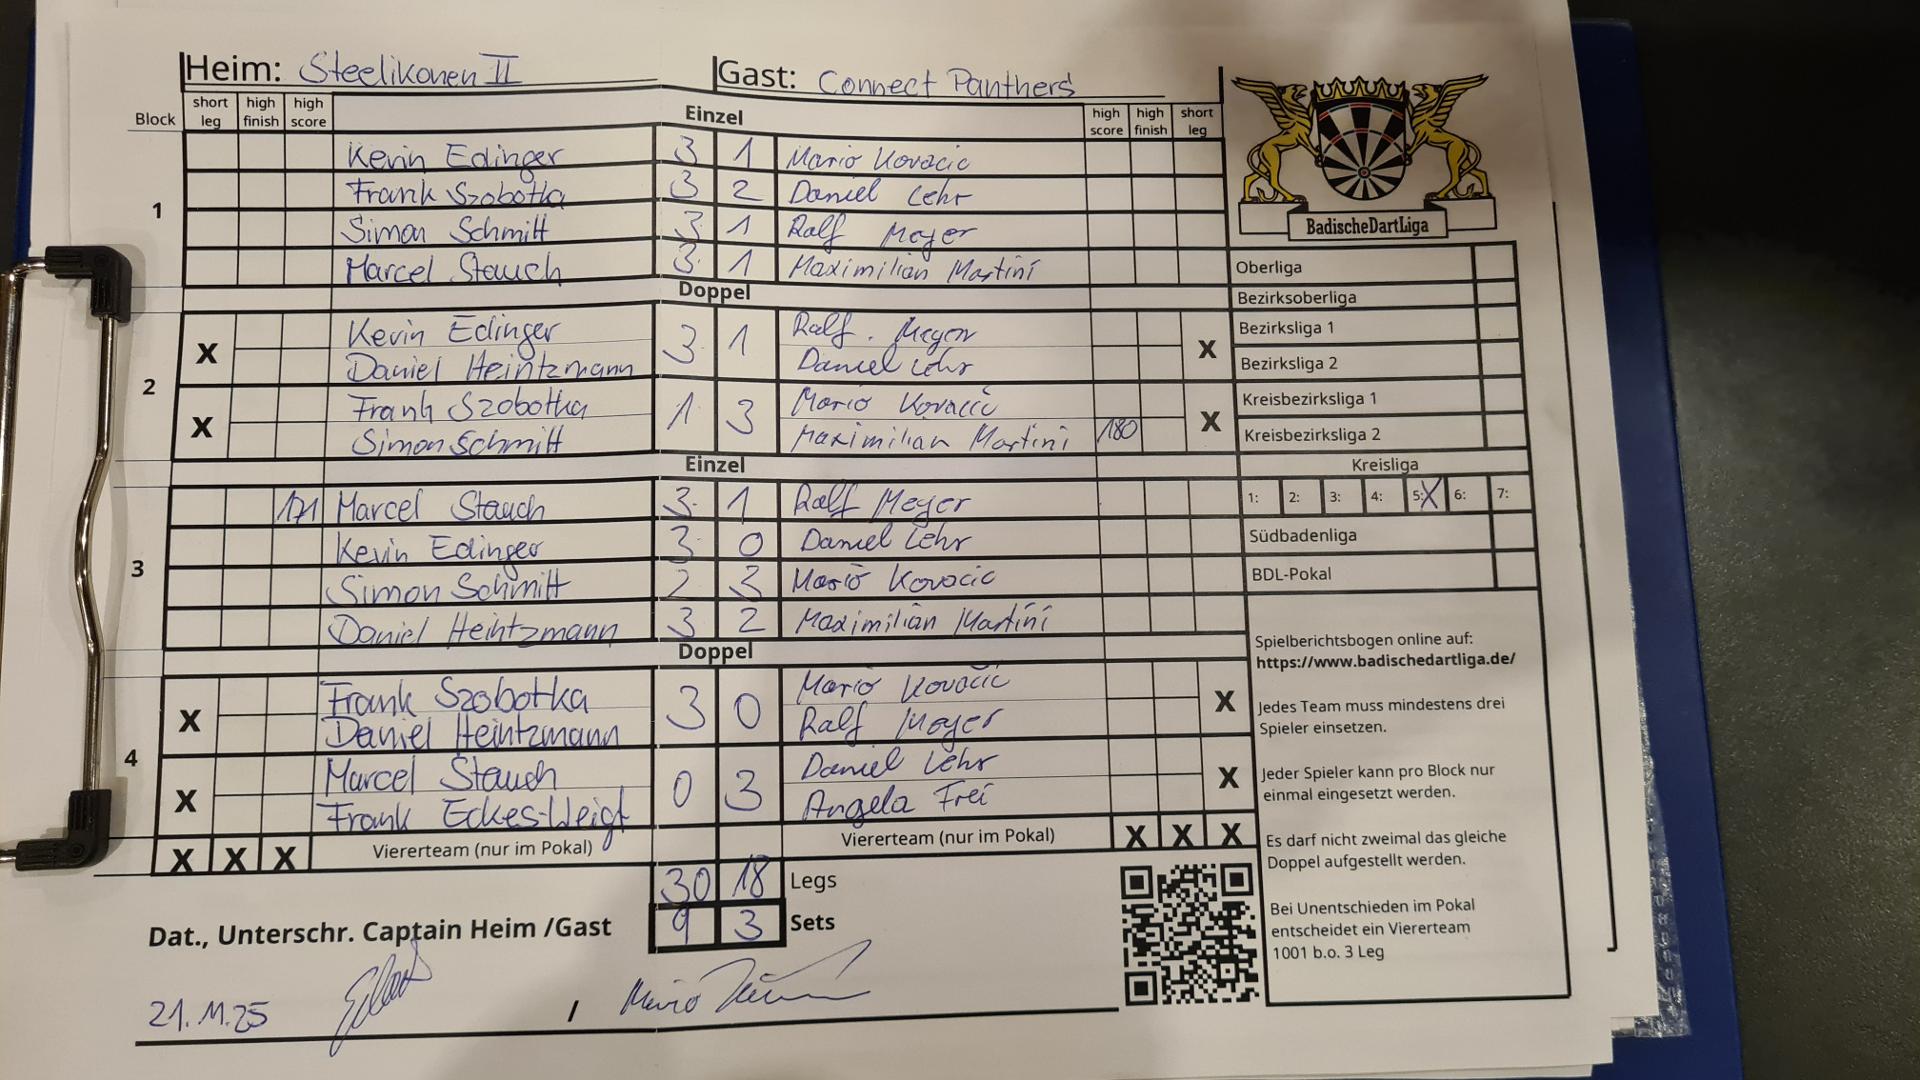 Heim: Steelikonen II Gast: Connect Panthers
Block short leg high finish high score Einzel high score high finish short leg
1
Kevin Edinger 3 1 Mario Kovacic
Frank Szobotka 3 2 Daniel Lehr
Simon Schmitt 3 1 Ralf Meyer
Marcel Stauch 3 1 Maximilian Martini
Doppel
2
X Kevin Edinger 3 1 Ralf Meyer X
Daniel Heintzmann Daniel Lehr
X Frank Szobotka 1 3 Mario Kovacic X
Simon Schmitt Maximilian Martini 180
Einzel
3
171 Marcel Stauch 3 1 Ralf Meyer
Kevin Edinger 3 0 Daniel Lehr
Simon Schmitt 2 3 Mario Kovacic
Daniel Heintzmann 3 2 Maximilian Martini
Doppel
4
X Frank Szobotka 3 0 Mario Kovacic X
Daniel Heintzmann Ralf Meyer
X Marcel Stauch 0 3 Daniel Lehr X
Frank Eckes-Weigt Angela Frei
X X X Vierteam (nur im Pokal) Viererteam (nur im Pokal) X X X
30 18 Legs
9 3 Sets
Dat., Unterschr. Captain Heim /Gast
21.11.25 / Mario
BadischeDartLiga
Oberliga
Bezirksoberliga
Bezirksliga 1
Bezirksliga 2
Kreisbezirksliga 1
Kreisbezirksliga 2
Kreisliga
1: 2: 3: 4: 5:X 6: 7:
Südbadenliga
BDL-Pokal
Spielberichtsbogen online auf:
https://www.badischedartliga.de/
Jedes Team muss mindestens drei
Spieler einsetzen.
Jeder Spieler kann pro Block nur
einmal eingesetzt werden.
Es darf nicht zweimal das gleiche
Doppel aufgestellt werden.
Bei Unentschieden im Pokal
entscheidet ein Viererteam
1001 b.o. 3 Leg